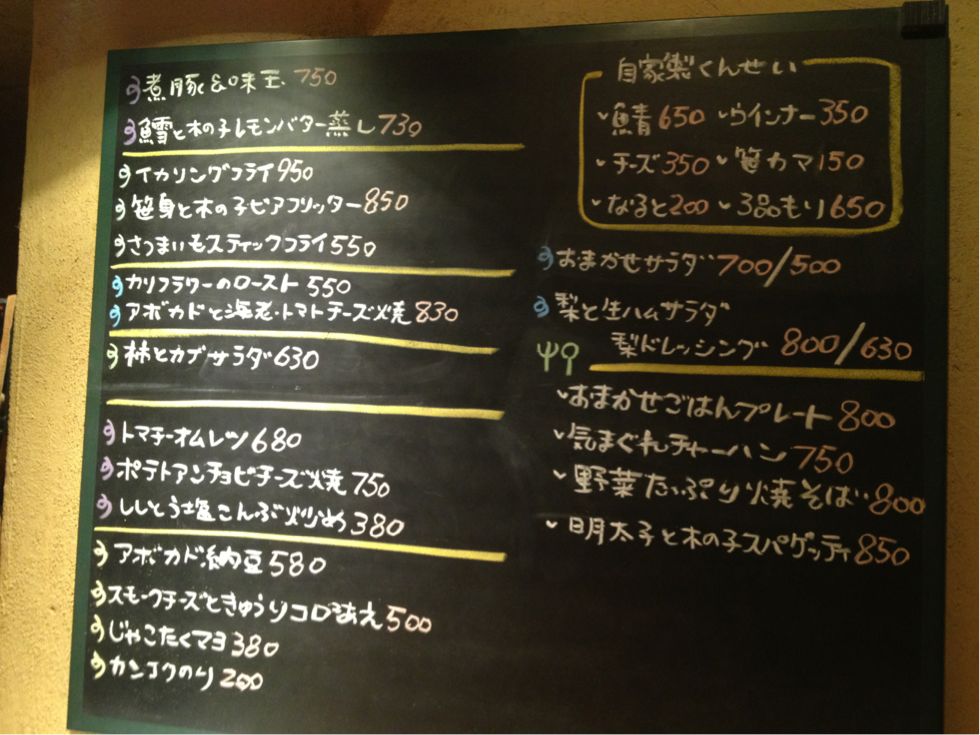 煮豚&味玉 750
鱈と木の子レモンバター蒸し730
イカリングフライ950
笹身と木の子ビアフリッター850
さつまいもスティックフライ550
カリフラワーのロースト 550
アボカドと海老・トマトチーズ焼 830
柿とカブサラダ630
トマチーオムレツ680
ポテトアンチョビチーズ焼 750
ししとう塩こんぶ炒め 380
アボカド納豆580
スモークチーズときゅうりコロコロあえ500
じゃこたくマヨ380
カンコクのり 200
自家製くんせい
鯖650 ウインナー350
チーズ350 笹カマ150
なると200 3品もり650
おまかせサラダ 700/500
梨と生ハムサラダ
梨ドレッシング 800/630
おまかせごはんプレート 800
気まぐれチャーハン 750
野菜たっぷり焼そば 800
明太子と木の子スパゲッティ 850